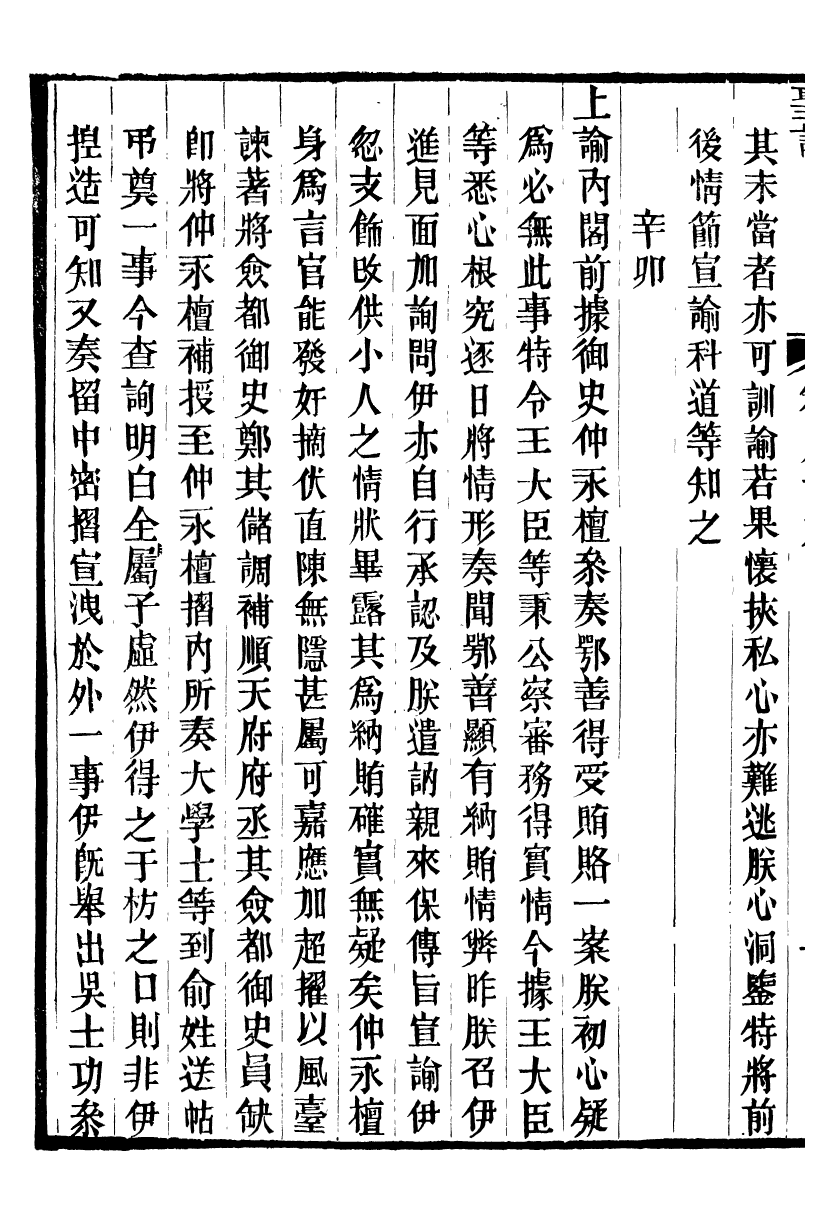 其未當者亦可訓諭若果懷挾私心亦難逃朕心洞鑒特將前
後情節宣諭科道等知之
辛卯
上諭內閣前據御史仲永檀叅奏鄂善得受賄賂一案朕初心疑
爲必無此事特令王大臣等秉公察審務得實情今據王大臣
等悉心根究逐日將情形奏聞鄂善顯有納賄情弊昨朕召伊
進見面加詢問伊亦自行承認及朕遣訥親來保傳旨宣諭伊
忽支飾改供小人之情狀畢露其爲納賄確實無疑矣仲永檀
身爲言官能發奸摘伏直陳無隱甚屬可嘉應加超擢以風臺
諫著將僉都御史鄭其儲調補順天府府丞其僉都御史員缺
卽將仲永檀補授至仲永檀摺內所奏大學士等到俞姓送帖
弔奠一事今查詢明白全屬子虛然伊得之于枋之口則非伊
捏造可知又奏留中密摺宣洩於外一事伊旣舉出吳士功叅